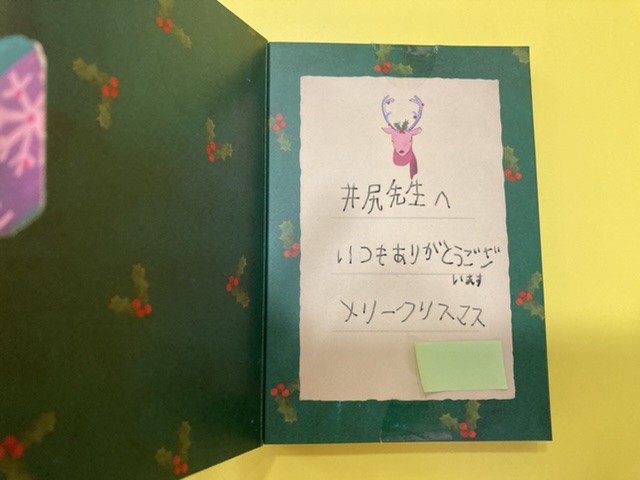 井尻先生へ
いつもありがとうござ
います
メリークリスマス